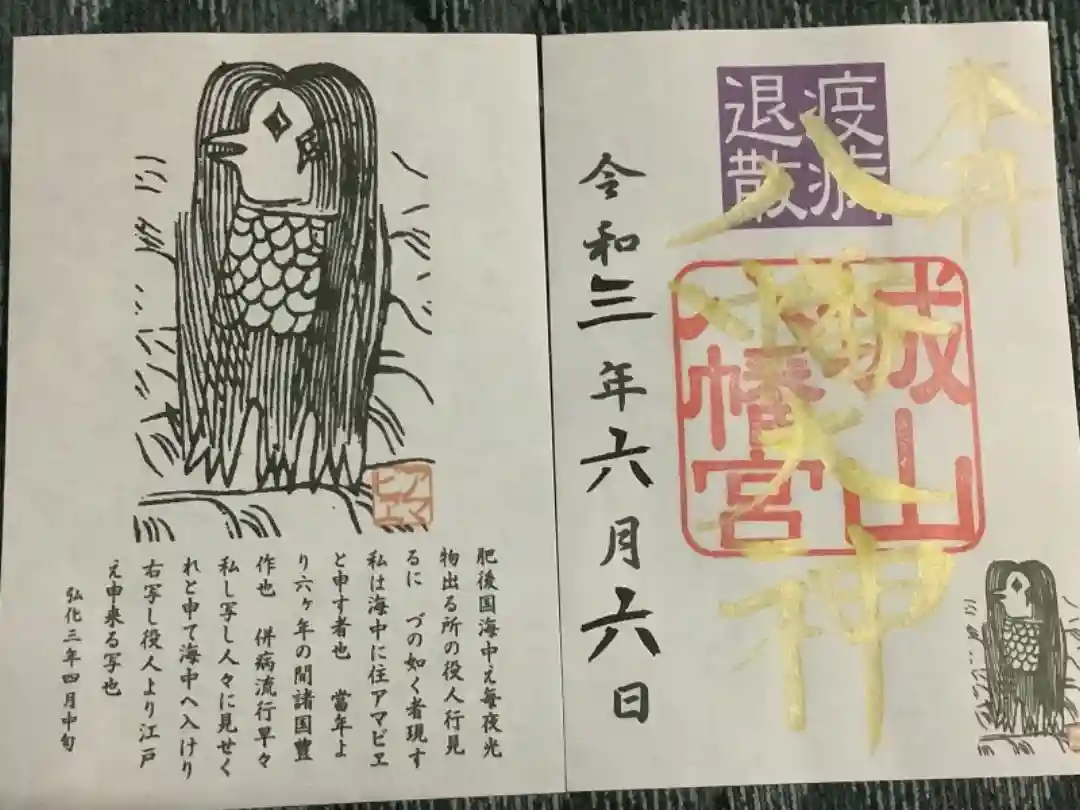 奉拝
疫病
退散
城山
八幡宮
八
大神
令和三年六月六日
アマ
ビエ
肥後国海中え毎夜光
物出る所の役人行見
るに づの如く者現す
私は海中に住アマビヱ
と申す者也 當年よ
り六ヶ年の間諸国豊
作也 併病流行早々
私し写し人々に見せく
れと申て海中へ入けり
右写し役人より江戸
え申来る写也
弘化三年四月中旬